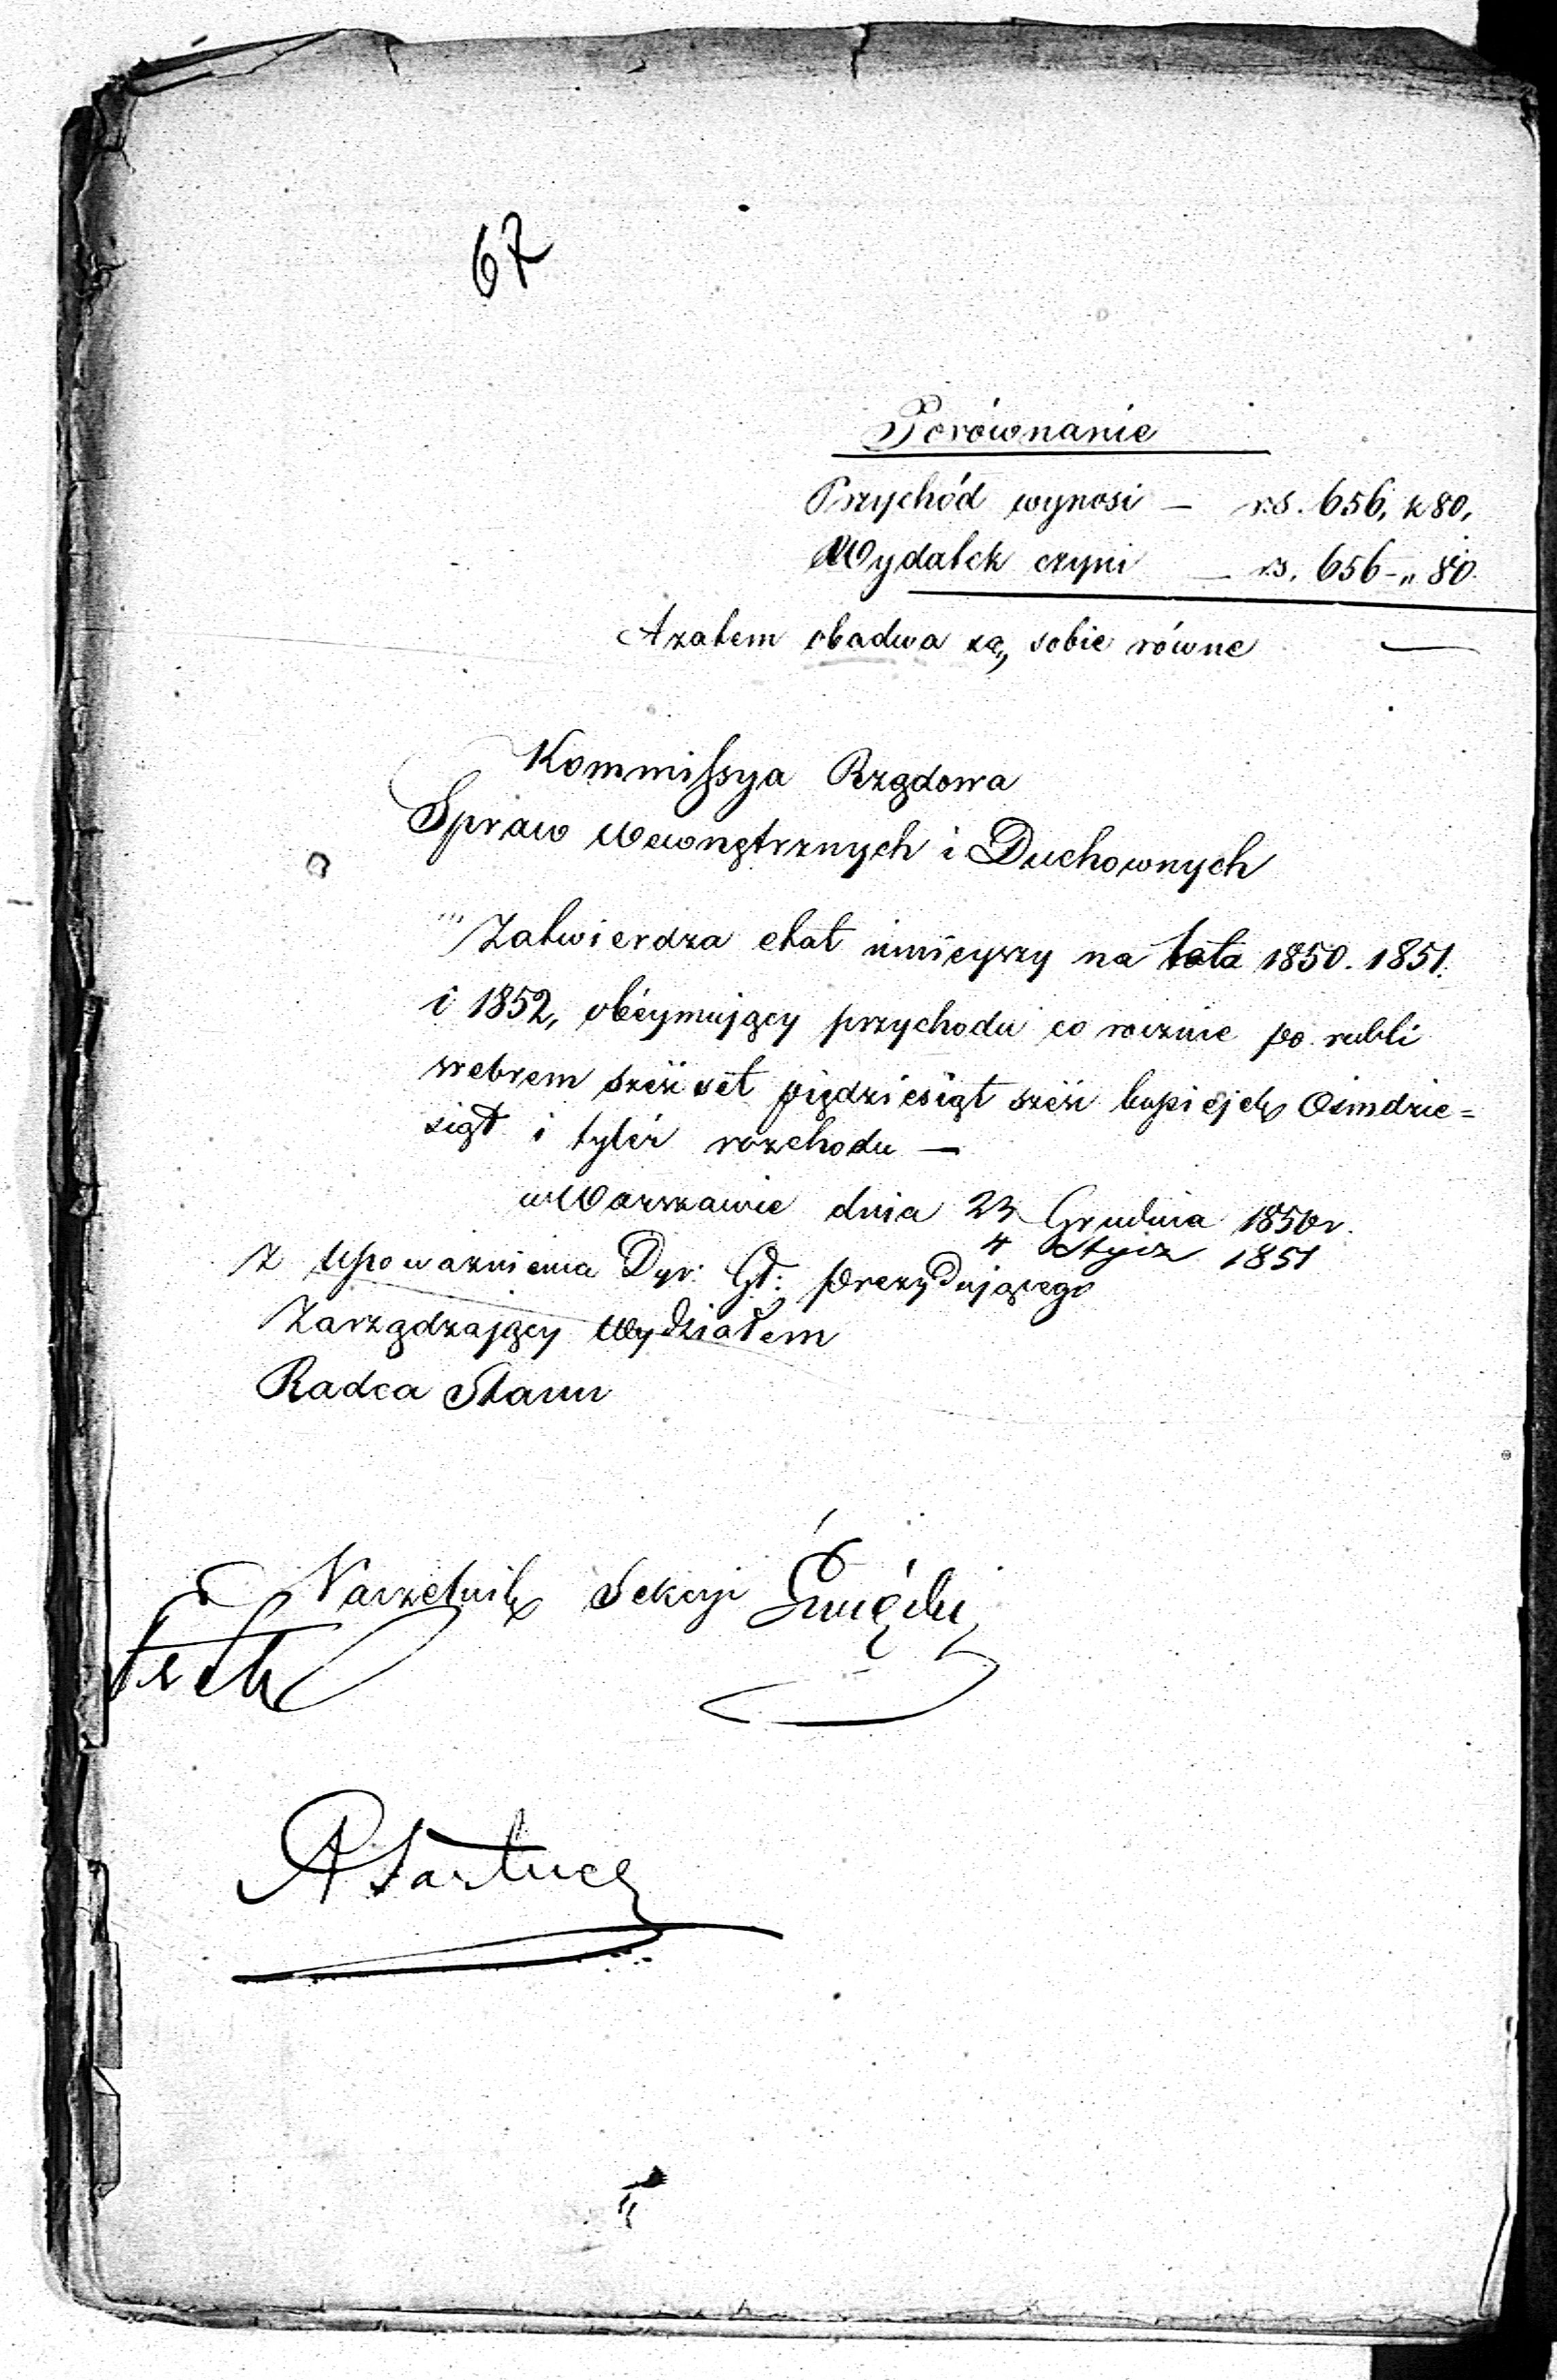 67
Porównanie
Przychód wynosi — rs. 656, k 80,
Wydatek czyni — rs. 656 - „ 80.
A zatem obadwa są, sobie równe —
Kommissya Rządowa
Spraw Wewnętrznych i Duchownych
Zatwierdza etat ninieyszy na lata 1850. 1851.
i 1852, obeymujący przychodu co rocznie po rubli
srebrem sześćset pięдziesiąt sześć kopiejek Ośmdzie=
siąt i tyleż rozchodu —
w Warszawie dnia 23 Grudnia 1850 r.
4 Stycz 1851
Z Upoważnienia Dyr: Gł: Prezydującego
Zarządzający Wydziałem
Radca Stanu
Naczelnik Sekcyi